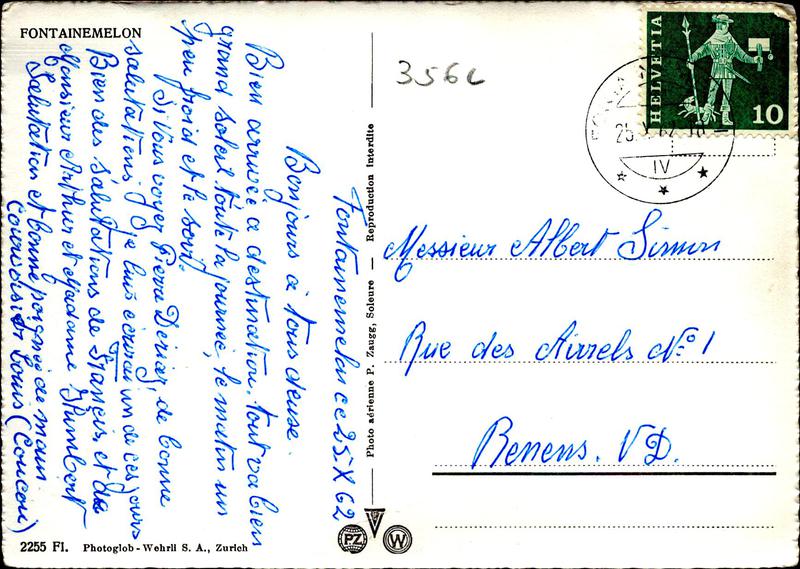 FONTAINEMELON
356c
HELVETIA
10
25. X
IV
Fontainemelon ce 25.X.62
Bonjours à tous deuse.
Bien arrivée a destination, tout va bien
grand soleil toute la journée, le matin un
peu froid et le soir.
Si vous voyez Pierre de bonne
salutations, Je lui écrirai un de ces jours
Bien des salutations de Francis, et de
Monsieur Arthur et Madame Humbert
Salutation et bonne poignée de main.
Courvoisier Louis (Coucou)
Messieur Albert Simon
Rue des Airrels No 1
Renens. VD.
Photo aérienne P. Zaugg, Soleure — Reproduction interdite
2255 Fl. Photoglob - Wehrli S. A., Zurich
PZ
W